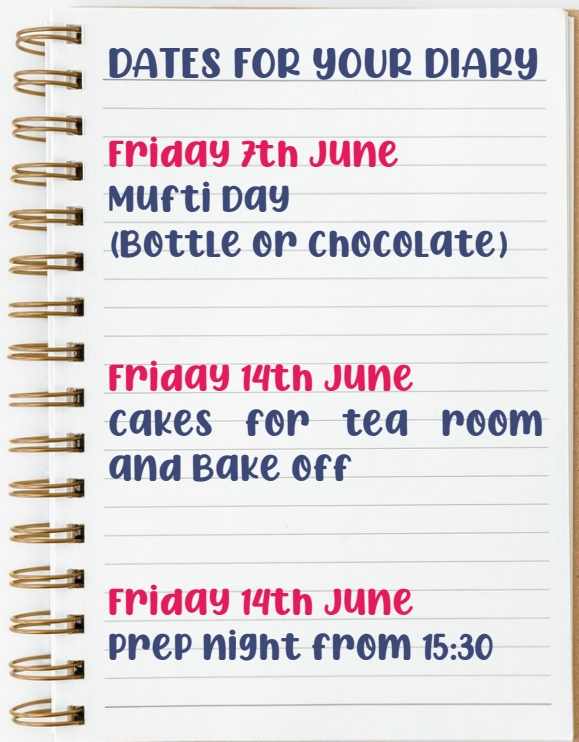 DATES FOR YOUR DIARY
Friday 7th June
Mufti Day
(Bottle or chocolate)
Friday 14th June
cakes for tea room
and Bake off
Friday 14th June
Prep night from 15:30